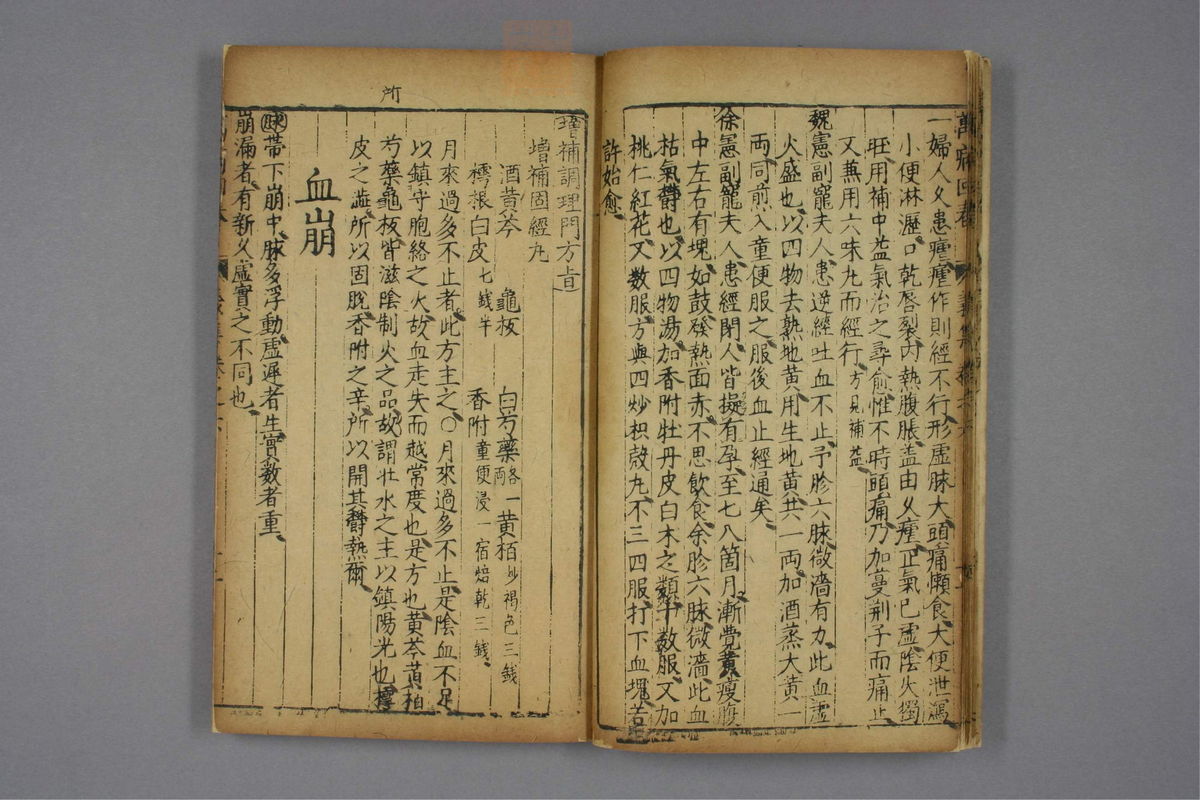 萬病回春
一婦人久患瘧瘧作則經不行形虛脉大頭痛懶食大便泄瀉
小便淋瀝口乾唇裂內熱腹脹蓋由久瘧正氣已虛陰火獨
旺用補中益氣治之尋愈惟不時頭痛乃加蔓荊子而痛止
又兼用六味丸而經行方見補益
魏憲副寵夫人患逆經吐血不止予胗六脉微濇有力此血虛
火盛也以四物去熟地黃用生地黃共一兩加酒蒸大黃一
兩同煎入童便服之服後血止經通矣
徐憲副寵夫人患經閉人皆擬有孕至七八箇月漸覺黃瘦腹
中左右有塊如鼓發熱面赤不思飲食余胗六脉微濇此血
枯氣欝也以四物湯加香附牡丹皮白木之類十數服又加
桃仁紅花又數服方與四炒枳殼丸不三四服打下血塊若
許始愈
增補調理門方旨
增補固經丸
酒黃芩 龜板 白芍藥各一兩 黃栢炒褐色三錢
樗根白皮七錢半 香附童便浸一宿焙乾三錢
月來過多不止者此方主之〇月來過多不止是陰血不足
以鎮守胞絡之火故血走失而越常度也是方也黃芩黃栢
芍藥龜板皆滋陰制火之品故謂壯水之主以鎮陽光也樗
皮之澁所以固脫香附之辛所以開其欝熱爾
所
血崩
脉帶下崩中脉多浮動虛遲者生實數者重
崩漏者有新久虛實之不同也